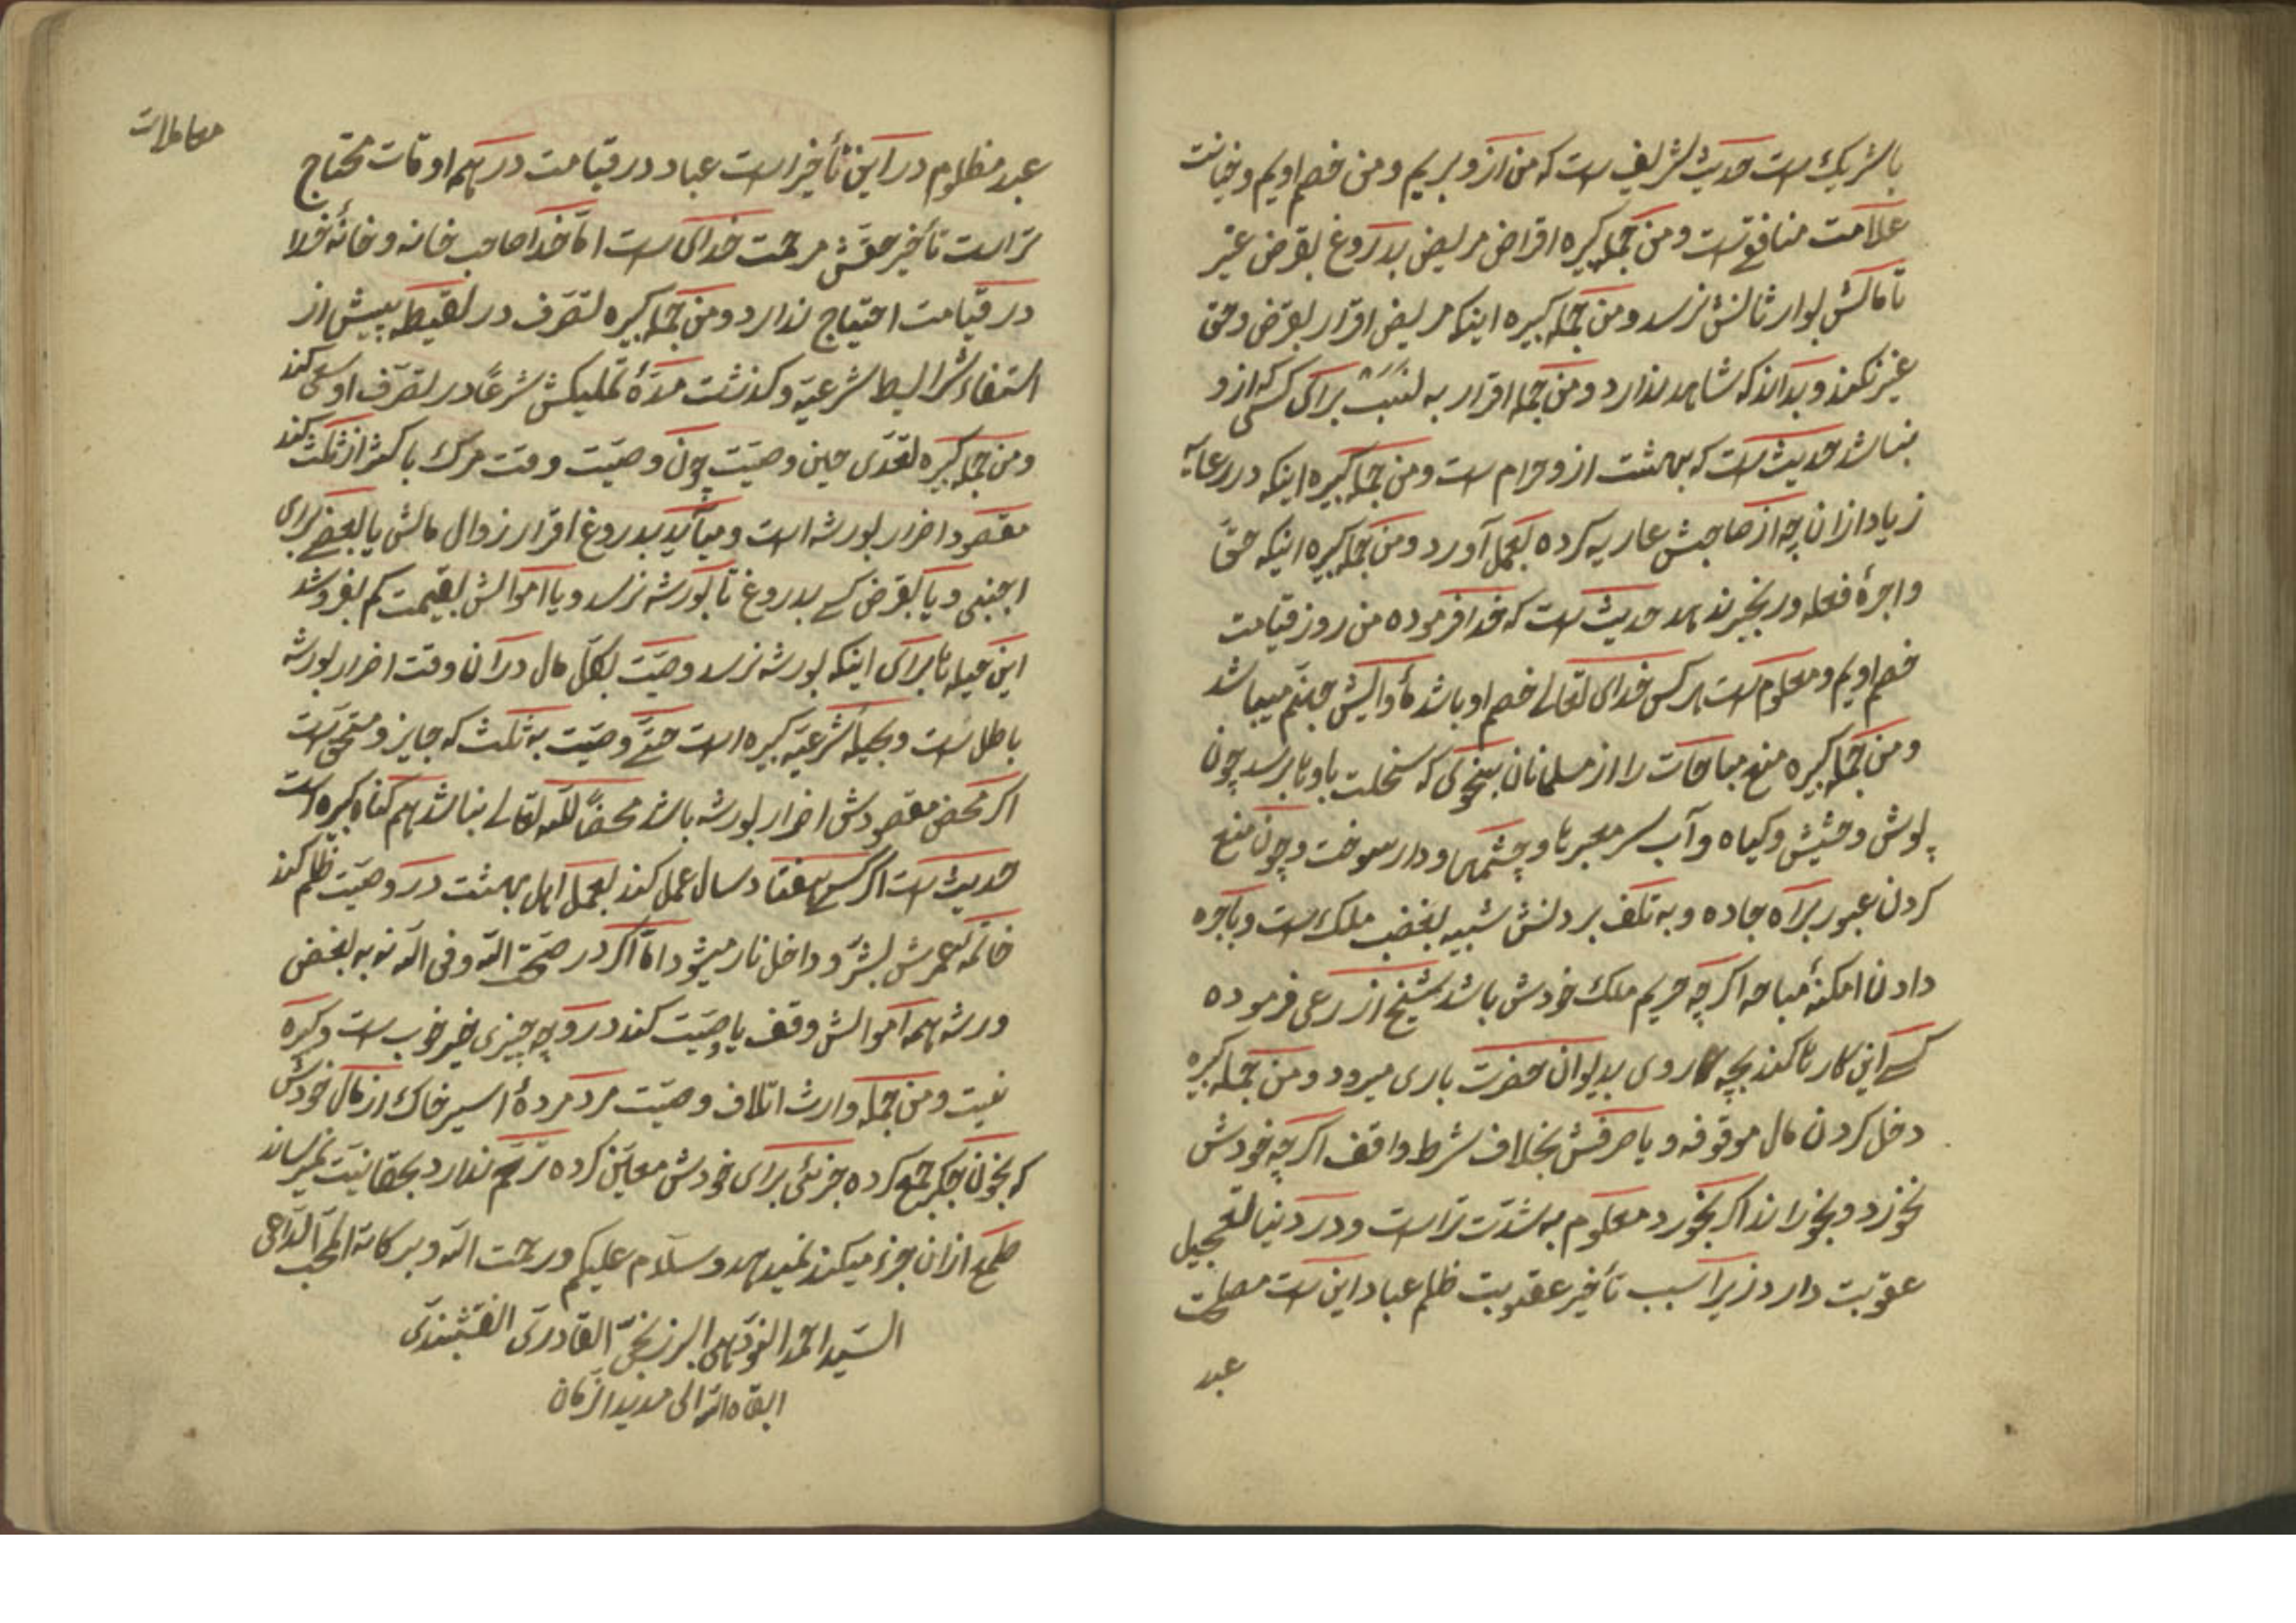 با شریک است حدیث شریف است که من ازو بریم و من خصم اویم و خیانت
علامت منافقست و من جمله کبیره اقراض مریض بدروغ بقرض غیر
تا مالش بوارثانش نرسد و من جمله کبیره اینکه مریض اقرار بقرض و حق
غیر نکند و بداند که شاهد ندارد و من جمله اقرار به نسب برای کسی که ازو
نباشد حدیث است که بهشت ازو حرام است و من جمله کبیره اینکه در رعایه
زیاد از ان چه از صاحبش عاریه کرده بعمل آورد و من جمله کبیره اینکه حق
و اجرهٔ فعله و رنجبر ندهد حدیث است که خدا فرموده من روز قیامت
خصم اویم و معلوم است هر کس خدای تعالی خصم او باشد مأوایش جهنم میباشد
و من جمله کبیره منع مباحات را از مسلمانان بنحوی که سخلت باوها برسد چون
پوش و حشیش و گیاه و آب سر معبرها و چشمها و دار سوخت و چون منع
کردن عبور براه جاده و به تکلف بردنش شبیه بغضب ملک است و باجره
دادن امکنهٔ مباحه اگر چه حریم ملک خودش باشد شیخ ازرعی فرموده
کسی این کارها کند بچه کاروی بدیوان حضرت باری میرود و من جمله کبیره
دخل کردن مال موقوفه و یا صرفش بخلاف شرط واقف اگر چه خودش
نخورد و بخوراند اگر بخورد معلوم به شدت تراست و در دنیا تعجیل
عقوبت دارد زیرا سبب تأخیر عقوبت ظلم عباد این است مصلحت
عبد
معاملات
عبد مظلوم در این تأخیر است عباد در قیامت در همه اوقات محتاج
تراست تأخیر حقش مرحمت خدای است اما خدا صاحب خانه و خانهٔ خدا
در قیامت احتیاج ندارد و من جمله کبیره تصرف در لقیطه پیش از
استفاء شرایط شرعیه و گذشت مدهٔ تملیکش شرعاً در تصرف او سعی کند
و من جمله کبیره تعدی حین وصیت چون وصیت وقت مرگ باکثر از ثلث کند
مقصود اضرار بورثه است و میآید بدروغ اقرار زوال مالش یا بعضی برای
اجنبی و یا بقرض کسی بدروغ تا بورثه نرسد و یا اموالش بقیمت کم بفروشد
این حیله ها برای اینکه بورثه نرسد وصیت بکل مال در آن وقت اضرار بورثه
باطل است و بحیلهٔ شرعیه کبیره است حتی وصیت به ثلث که جایز و مستحق است
اگر محض مقصودش اضرار بورثه باشد محضاً لله تعالی نباشد هم گناه کبیره است
حدیث است اگر کسی هفتاد سال عمل کند بعمل اهل بهشت در وصیت ظلم کند
خاتمه عمرش بشر و داخل نار میشود اما اگر در صحت الله و فی الله نه به بغض
ورثه همه اموالش وقف یا وصیت کند در وجه چیزی خیر خوب است و کبیره
نیست و من جمله وارث اتلاف وصیت مرد مردهٔ اسیر خاک از مال خودش
که بخون جگر جمع کرده جزئی برای خودش معین کرده ترحم ندارد بحقانیت نمیرساند
طمع از ان جزء میکند نمیدهد و سلام علیکم و رحمت الله و برکاته المحب الداعی
السید احمد النودهی البرزنجی القادری النقشبندی
ابقاه الله الی مدید الزمان